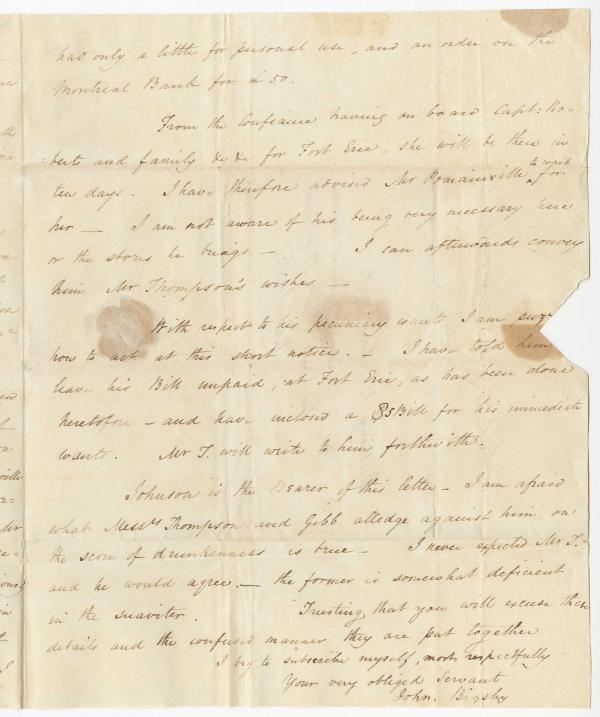 has only a little for personal use, and an order on the
Montreal Bank for £50.
From the Confiance having on board Capt: Ro-
:berts and family &c &c for Fort Erie, she will be there in
ten days. I have therefore advised Mr Pomainville to wait for
her — I am not aware of his being very necessary here
or the stores he brings — I can afterwards convey
him Mr Thompson's wishes —
With respect to his pecuniary wants I am
how to act at this short notice. — I have told him
leave his Bill unpaid, at Fort Erie, as has been done
heretofore — and have inclosed a $5 Bill for his immediate
wants. Mr T. will write to him forthwith.
Johnson is the Bearer of this letter — I am afraid
what Messrs Thompson and Gibb alledge against him on
the score of drunkenness is true — I never expected Mr T.
and he would agree. — the former is somewhat deficient
in the suaviter. Trusting that you will excuse these
details and the confused manner they are put together
I beg to subscribe myself, most respectfully
Your very obliged Servant
John. Bigsby